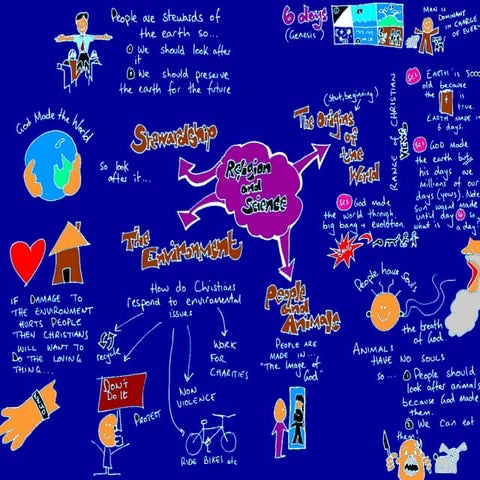 People are stewards of
the earth so...
① We should look after
it
② We should preserve
the earth for the future
God Made the World
So look
after it...
Stewardship
The Environment
Religion
and
Science
The Origins
of the
World
(start, beginning)
6 days
(Genesis
MAN is
DOMINANT
IN CHARGE
OF EVERY
RANGE OF CHRISTIAN
VIEWS
EARTH IS 5000
old because
the
is
true.
EARTH MADE IN
6 days.
GOD MADE
the earth but
his days are
millions of our
days (years). Note
Sun wasn't made
until day 4 so
what is a day?
GOD made
the world through
big bang + evolution.
IF DAMAGE TO
THE ENVIRONMENT
HURTS PEOPLE
THEN CHRISTIANS
WILL WANT TO
DO THE LOVING
THING...
How do Christians
respond to enviromental
issues
recycle
DON'T
DO IT
PROTEST
NON
VIOLENCE
WORK
FOR
CHARITIES
RIDE BIKES etc
People
and
Animals
PEOPLE ARE
MADE IN...
"The Image of
God"
People have Souls
the breath of
God.
ANIMALS
HAVE NO SOULS
so...
① People should
look after animals
because God made
them.
② We can eat
them!